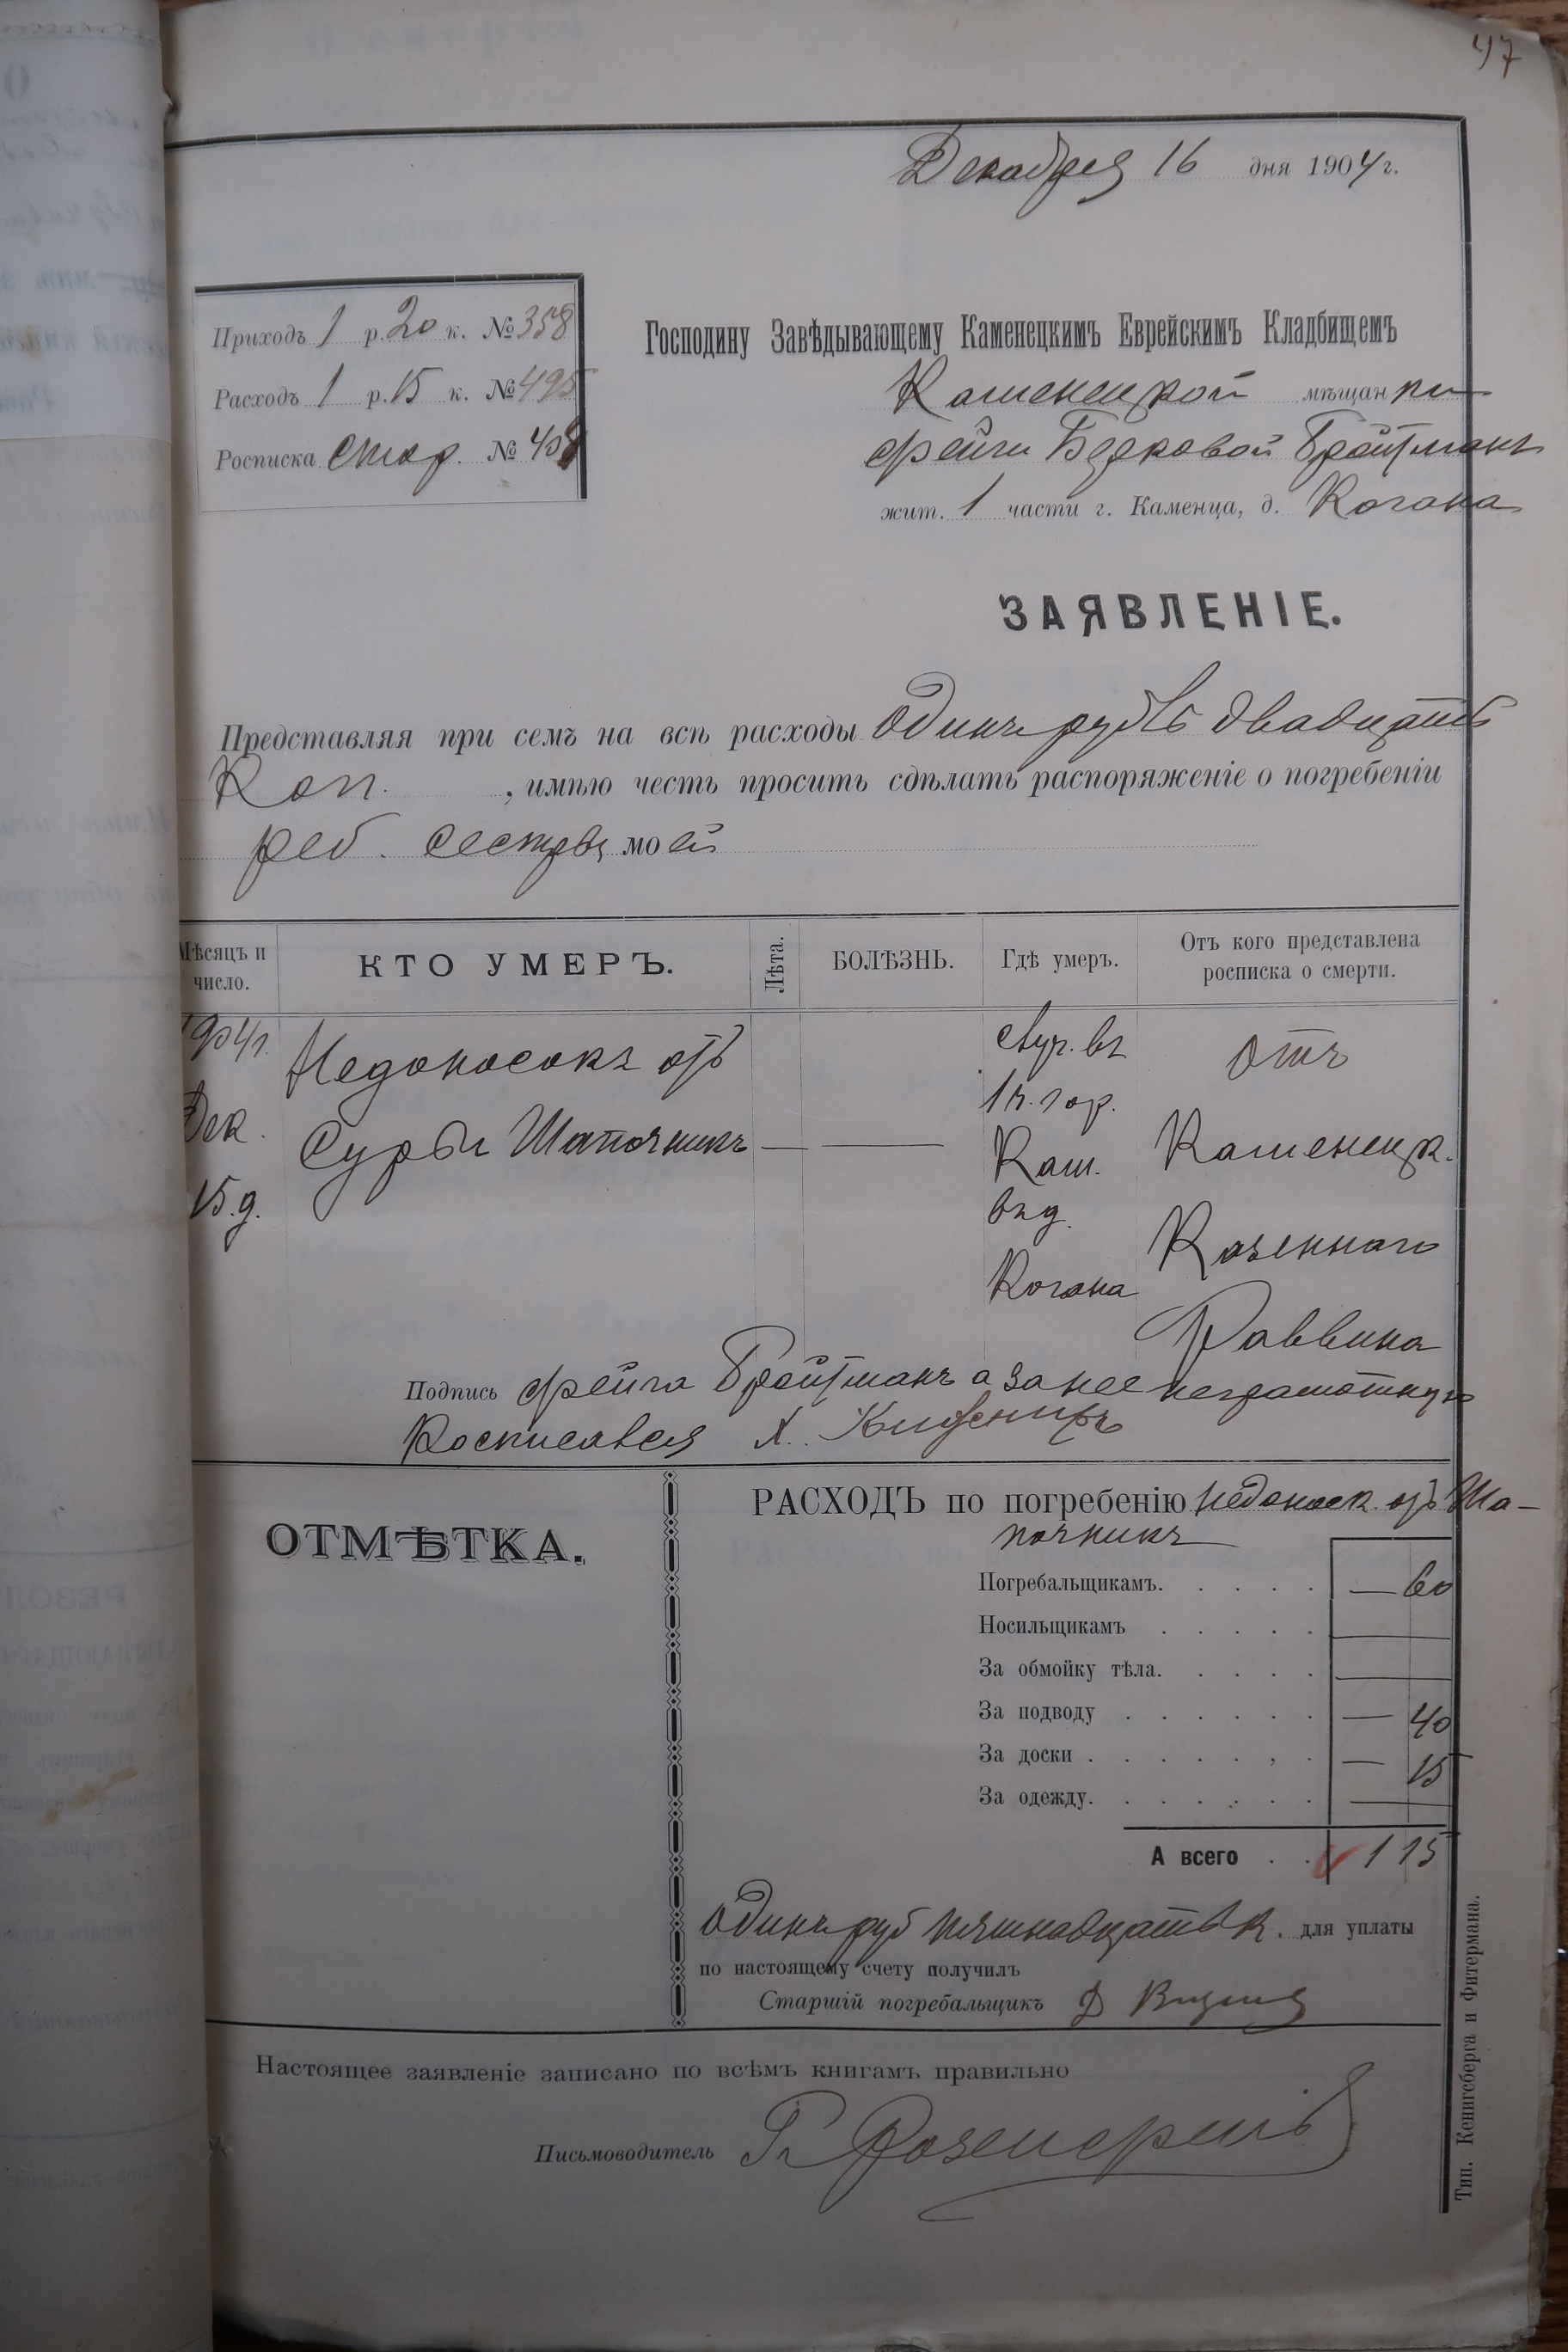 47
Декабря 16 дня 1904 г.
Приходъ 1 р. 20 к. № 358
Расходъ 1 р. 15 к. № 495
Росписка стор. № 408
Господину Завѣдывающему Каменецкимъ Еврейскимъ Кладбищемъ
Каменецкой мѣщанки
Фейги Берковой Бройтманъ
жит. 1 части г. Каменца, д. Когана
ЗАЯВЛЕНІЕ.
Представляя при семъ на всѣ расходы Одинъ рубль двадцать
Коп. , имѣю честь просить сдѣлать распоряженіе о погребеніи
реб. сестры моей
Мѣсяцъ и число.
КТО УМЕРЪ.
Лѣта.
БОЛѢЗНЬ.
Гдѣ умеръ.
Отъ кого представлена росписка о смерти.
1904 г.
Дек.
15 д.
Недоносокъ отъ
Суры Шапочникъ
—
—
случ. въ
1 ч. гор.
Кам.
въ д.
Когана
Отъ
Каменецк.
Казеннаго
Раввина
Подпись Фейга Бройтманъ а за нее неграмотную
Росписался Х.
РАСХОДЪ по погребенію недоноск. отъ Ша-
почникъ
ОТМѢТКА.
Погребальщикамъ. . . . . — 60
Носильщикамъ . . . . . —
За обмойку тѣла. . . . . —
За подводу . . . . . . — 40
За доски . . . . . , . — 15
За одежду. . . . . . . —
А всего . . 1 15
Одинъ руб пятнадцать к. для уплаты
по настоящему счету получилъ
Старшій погребальщикъ Д
Настоящее заявленіе записано по всѣмъ книгамъ правильно
Письмоводитель
Тип. Кенигсберга и Фитермана.